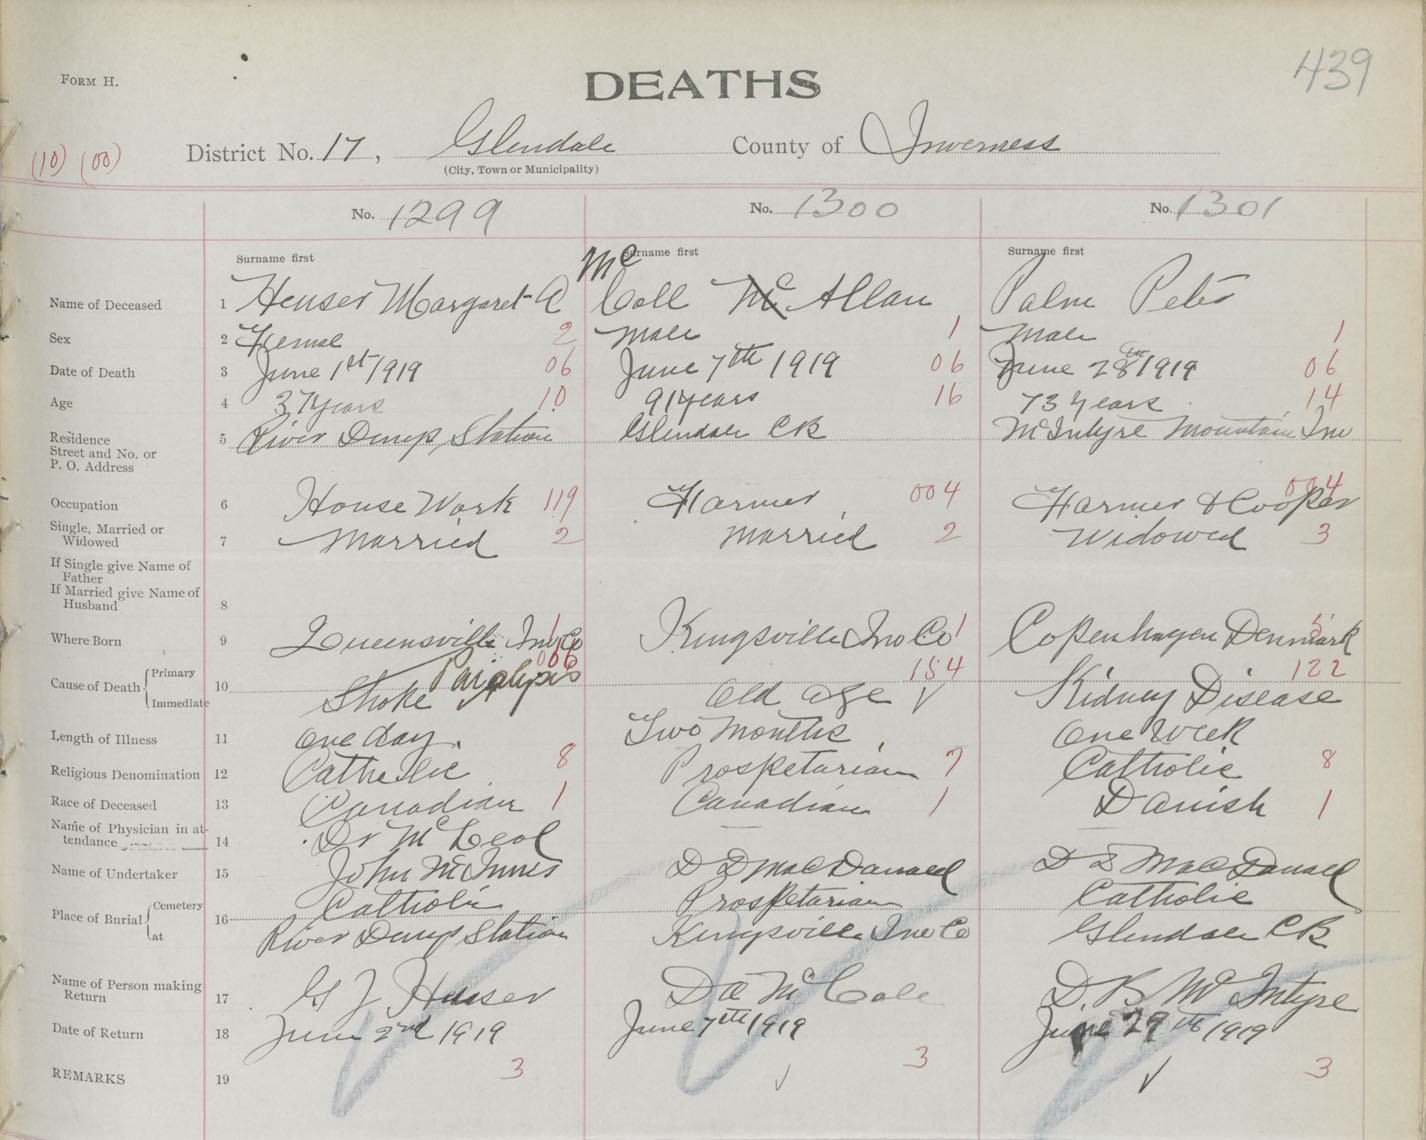 439
FORM H.
DEATHS
(10) (00)
District No. 17, Glendale County of Inverness
(City, Town or Municipality)
No. 1299 No. 1300 No. 1301
Surname first Surname first Surname first
Name of Deceased 1 Heuser Margaret A Mc Coll Mc Allan Palm Peter
Sex 2 Femal 2 Male 1 Male 1
Date of Death 3 June 1st 1919 06 June 7th 1919 06 June 28th 1919 06
Age 4 37 years 10 91 years 16 73 years 14
Residence
Street and No. or
P. O. Address 5 River Denys Station Glendale CB McIntyre Mountain Inv
Occupation 6 House Work 119 Farmer 004 Farmer & Cooper 004
Single, Married or
Widowed 7 Married 2 Married 2 Widowed 3
If Single give Name of
Father
If Married give Name of
Husband 8
Where Born 9 Queensville Inv Co 1 Kingsville Inv Co 1 Copenhagen Denmark 5
Cause of Death Primary 10 Paralysis 066 154 122
Immediate Stroke Old age ✓ Kidney Disease
Length of Illness 11 One day. Two Months One Week
Religious Denomination 12 Catholic 8 Prospetarian 7 Catholic 8
Race of Deceased 13 Canadian 1 Canadian 1 Danish 1
Name of Physician in at-
tendance 14 Dr McLeod
Name of Undertaker 15 John McInnis D D MacDonald D D MacDonald
Place of Burial Cemetery 16 Catholic Prospetarian Catholic
at River Denys Station Kingsville Inv Co Glendale CB
Name of Person making
Return 17 G J Heuser D A McCole D. B McIntyre
Date of Return 18 June 2nd 1919 June 7th 1919 June 29th 1919
REMARKS 19 3 ✓ 3 ✓ 3